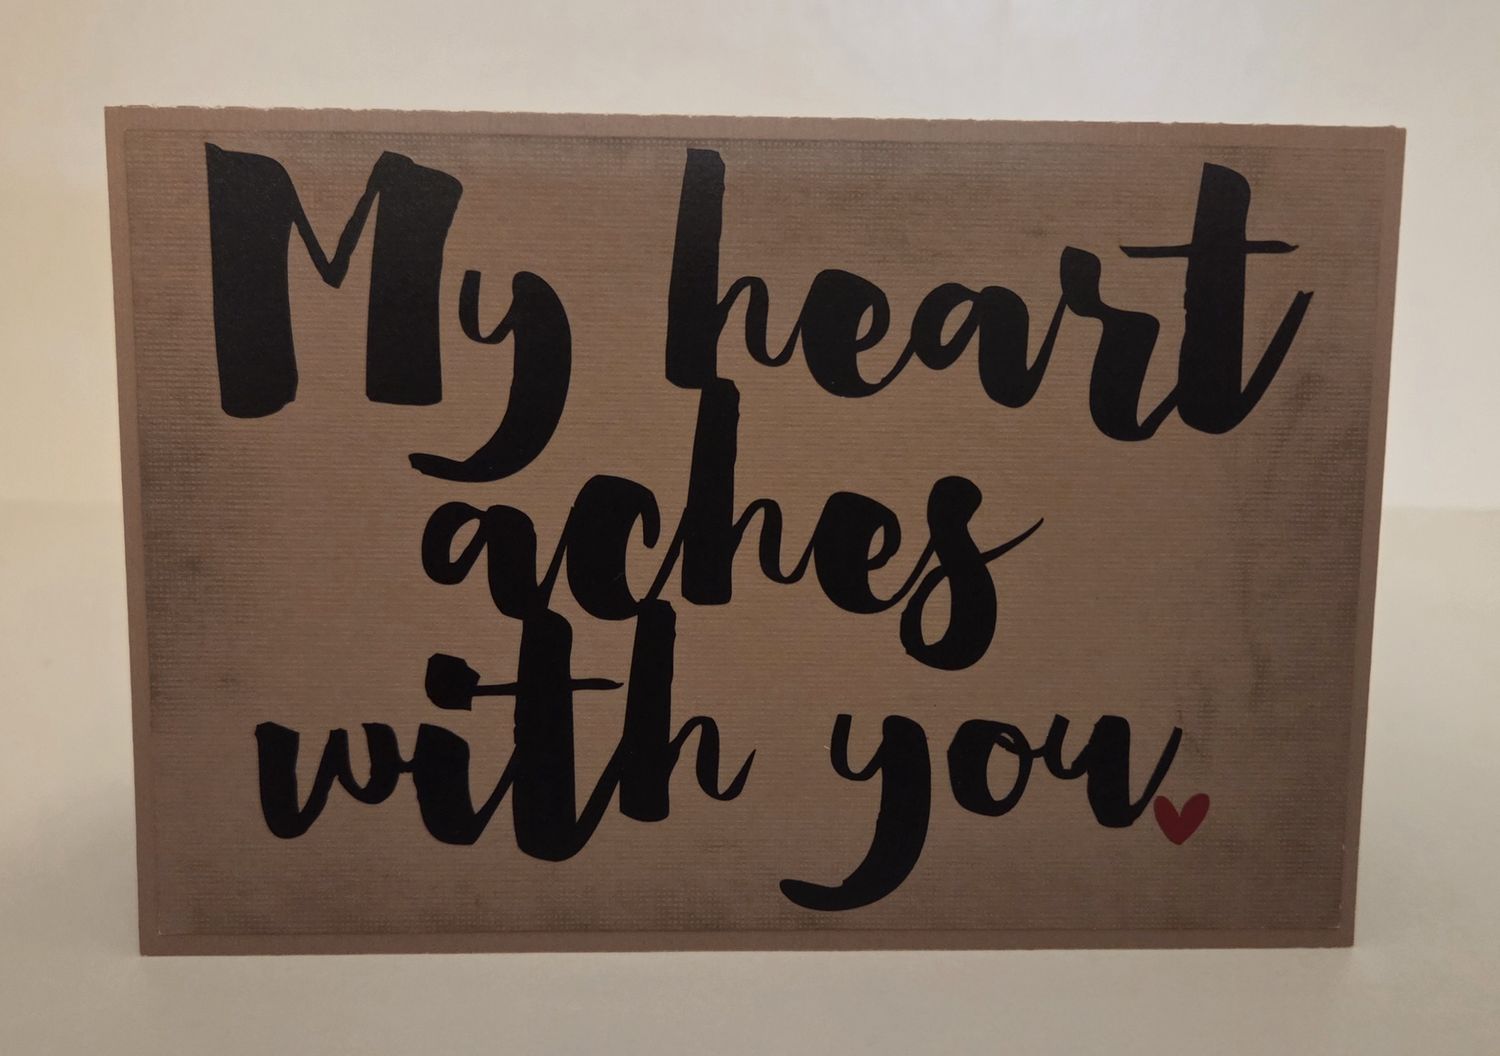 My heart
aches
with you